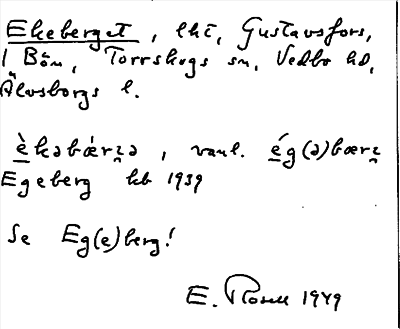 Ekeberget, lht, Gustavsfors,
i Bön, Torrskogs sn, Vedbo hd,
Älvsborgs l.
è̱kəbǽrꭋə, vanl. é̱g(ə)bærꭋ
Egeberg kb 1939
Se Eg(e)berg!
E. Rosell 1949